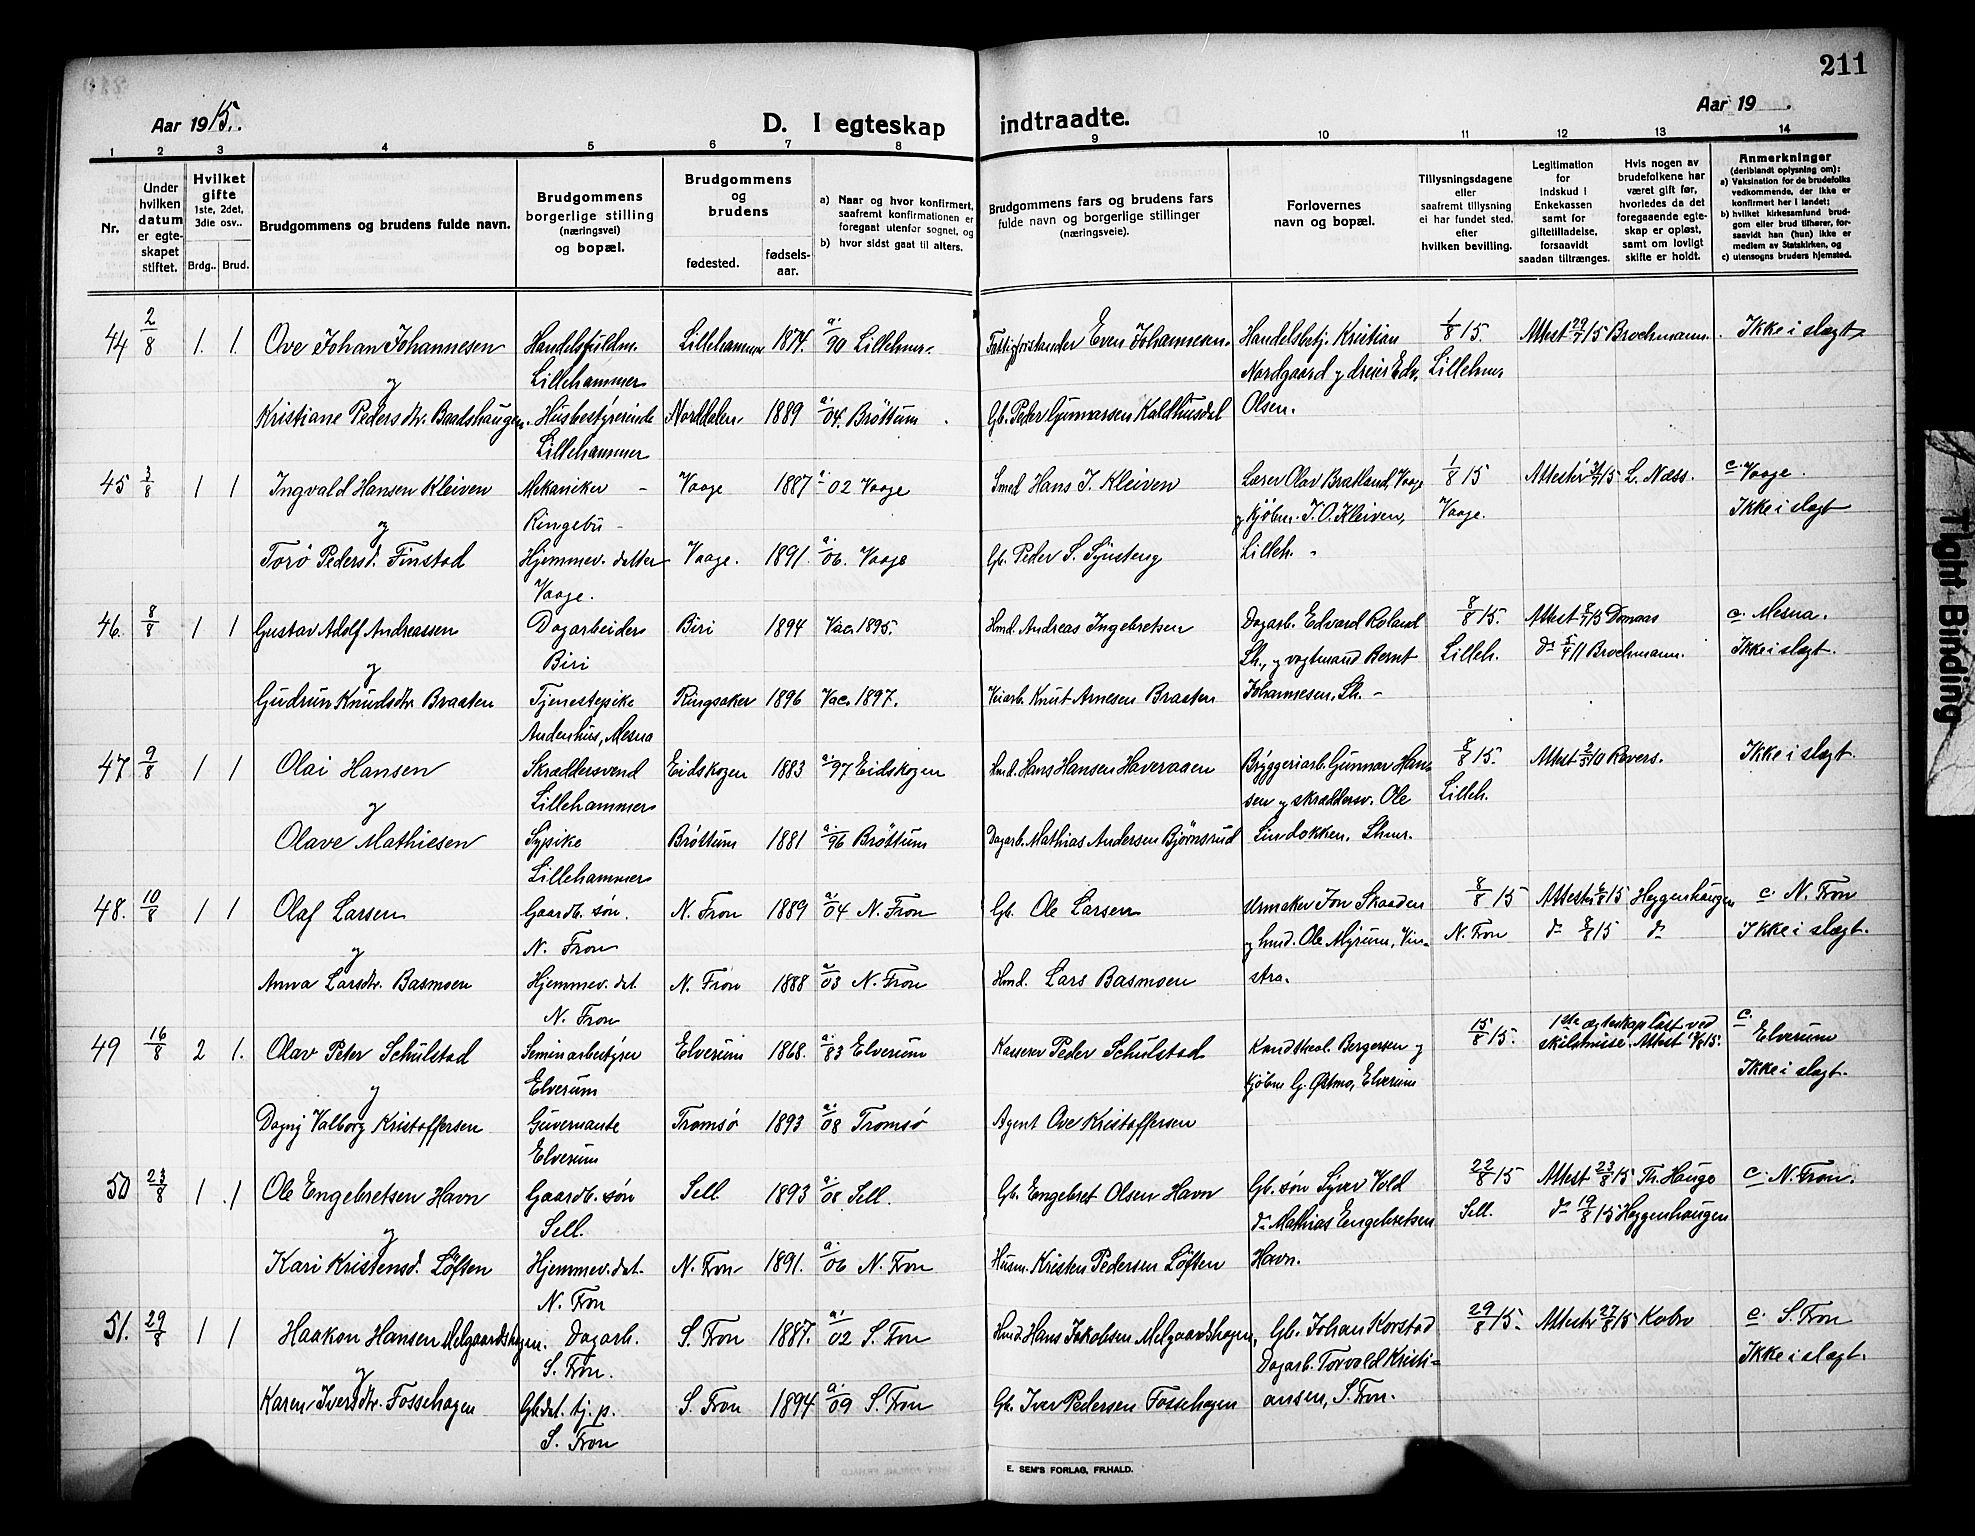 211
Aar 1915.
D. I egteskap indtraadte.
Aar 19
1 2 3 4 5 6 7 8 9 10 11 12 13 14
Nr.
Under hvilken datum er egteskapet stiftet.
Hvilket gifte 1ste, 2det, 3die osv..
Brdg.. Brud.
Brudgommens og brudens fulde navn.
Brudgommens borgerlige stilling (næringsvei) og bopæl.
Brudgommens og brudens
fødested. fødsels-aar.
a) Naar og hvor konfirmert, saafremt konfirmationen er foregaat utenfor sognet, og
b) hvor sidst gaat til alters.
Brudgommens fars og brudens fars fulde navn og borgerlige stillinger (næringsveie).
Forlovernes navn og bopæl.
Tillysningsdagene eller saafremt tillysning ei har fundet sted, efter hvilken bevilling.
Legitimation for Indskud i Enkekassen samt for giftetilladelse, forsaavidt saadan tiltrænges.
Hvis nogen av brudefolkene har været gift før, hvorledes da det foregaaende egteskap er opløst, samt om lovligt skifte er holdt.
Anmerkninger (deriblandt oplysning om):
a) Vaksination for de brudefolks vedkommende, der ikke er konfirmert her i landet;
b) hvilket kirkesamfund brudgom eller brud tilhører, forsaavidt han (hun) ikke er medlem av Statskirken, og
c) utensogns bruders hjemsted.
44 2/8 1. 1. Ove Johan Johannesen Lillehammer 1874. a. 90 Lillehmr. Fattigforstander Even Johannesen. Handelsbetj. Kristian 1/8 15. Attest 29/7 15 Brochmann. Ikke i slegt
Lillehammer Nordgaard y dreier Edv. Lillehmr
y
Kristiane Pedersdtr. Baadshaugen. Husbestyrerinde Norddalen 1889 a. 04. Brøttum Gb. Peder Gunnarsen Kaldhusdal Olsen.
Lillehammer
45 3/8 1 1 Ingvald Hansen Kleiven Mekaniker Vaage 1887 a. 02 Vaage Smed Hans J. Kleiven Lærer Olav Bratland, Vaage 1/8 15 Attester 31/7 15 L. Næss. c. Vaage.
y Ringebu y kjøbm. J. O. Kleiven, Vaage. Ikke i slegt
Torø Pedersd. Finstad Hjemmev. datter Vaage. 1891. a. 06. Vaage Gb. Peder S. Lilleh.
Vaage.
46. 8/8 1 1 Gustav Adolf Andreassen Dagarbeider Biri 1894 Vac. 1895. Hmd. Andreas Ingebretsen Dagarb. Edvard Roland 8/8 15. Attest 8/7 15 Domaas c. Mesna.
y Biri Lh., y vogtmand Bernt Lilleh. do 5/4 11 Brochmann. Ikke i slegt.
Gudrun Knudsdtr. Braaten Tjenestepike Ringsaker 1896 Vac. 1897. Veiarb. Knut Arnesen Braaten Johannesen, Lh.
Mesna
47 9/8 1 1 Olai Hansen Skræddersvend Eidskogen 1883 a. 97 Eidskogen Hmd. Hans Hansen Haveraaen Bryggeriarb. Gunnar Han- 8/8 15. Attest 2/5 10 Ikke i slegt.
y Lillehammer sen y skræddersv. Ole Lilleh.
Olave Mathiesen Sypike Brøttum 1881 a. 96 Brøttum Dagarb. Mathias Andersen Bjørnsrud Lindokken. Lhmr.
Lillehammer
48. 10/8 1 1 Olaf Larsen Gaardb. søn. N. Fron 1889 a. 04 N. Fron Gb. Ole Larsen Urmaker Jon Skaaden 8/8 15 Attester 6/8 15 Heggenhaugen c. N. Fron
y N. Fron y hmd. Ole Myrum, Vin- N. Fron do 8/8 15 do Ikke i slegt.
Anna Larsdtr. Basmoen Hjemmev. dat. N. Fron 1888 a. 03 N. Fron Hmd. Lars Basmoen stra.
N. Fron
49 16/8 2 1. Olav Peter Schulstad Seminarbestyrer Elverum 1868. a. 83 Elverum Kasserer Peder Schulstad Kand. theol. Bergersen y 15/8 15. 1ste ægteskap løst ved c. Elverum
y Elverum kjøbm G. Østmo, Elverum skilsmisse. Attest 14/8 15. Ikke i slegt.
Dagny Valborg Kristoffersen Guvernante Tromsø 1893 a. 08 Tromsø Agent Ove Kristoffersen
Elverum
50 23/8 1 1 Ole Engebretsen Havn Gaardb. søn Sell 1893 a. 08 Sell. Gb. Engebret Olsen Havn Gb. søn Syver Vold 22/8 15 Attest 23/8 15 Th. Hauge c. N. Fron.
y Sell. do Mathias Engebretsen Sell. do 19/8 15 Heggenhaugen
Kari Kristensd. Løften Hjemmev. dat. N. Fron 1891. a. 06 N. Fron Husm. Kristen Pedersen Løften Havn.
N. Fron
51. 29/8 1 1 Haakon Hansen Melgaardshagen. Dagarb. S. Fron 1887. a. 02 S. Fron Hmd. Hans Jakobsen Melgaardshagen, Gb. Johan Korstad 29/8 15. Attester 27/8 15 Kobro c. S. Fron
y S. Fron. Dagarb. Torvald Kristi- Ikke i slegt.
Karen Iversdtr. Fossehagen Gb.dat. tj. p. S. Fron 1894 a. 09 S. Fron Gb. Iver Pedersen Fossehagen ansen, S. Fron.
S. Fron
E. SEM'S FORLAG, FR.HALD.
Tight Binding